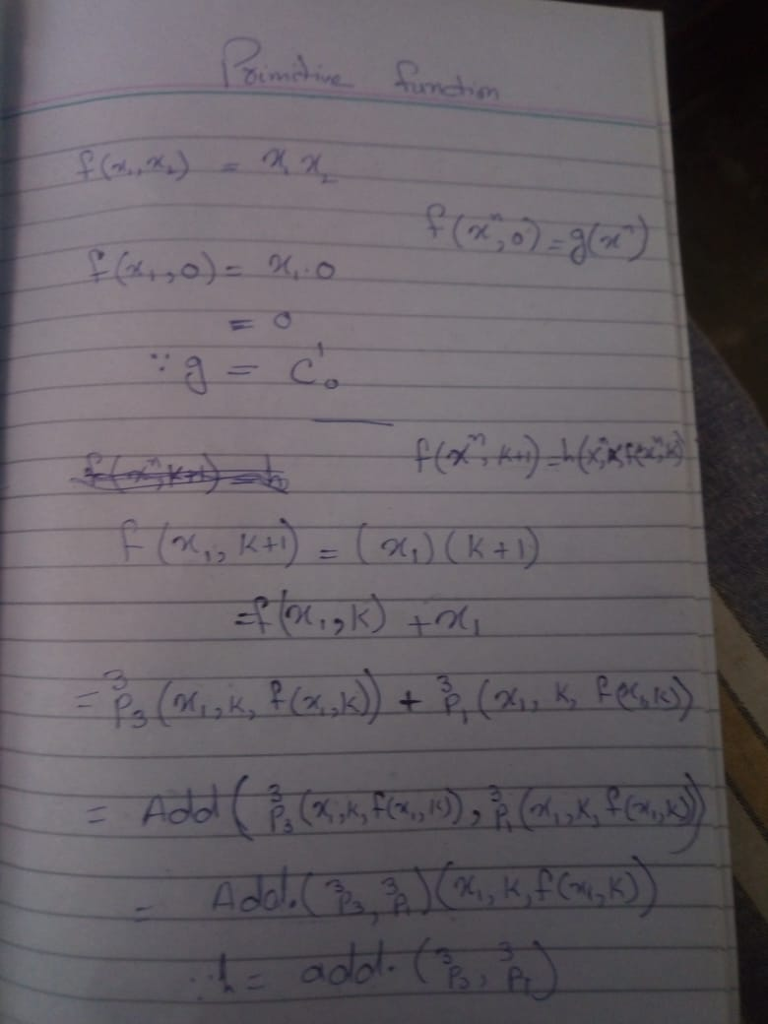 Primitive function
f(x₁, x₂) = x₁ x₂
f(xⁿ, 0) = g(xⁿ)
f(x₁, 0) = x₁ . 0
= 0
∵ g = C¹₀
f(xⁿ, k+1) = h
f(xⁿ, k+1) = h(xⁿ, k, f(xⁿ, k)
f(x₁, k+1) = (x₁)(k+1)
= f(x₁, k) + x₁
= ³P₃(x₁, k, f(x₁, k)) + ³P₁(x₁, k, f(x₁, k))
= Add(³P₃(x₁, k, f(x₁, k)), ³P₁(x₁, k, f(x₁, k))
= Add.(³P₃, ³P₁)(x₁, k, f(x₁, k))
∴ h = add.(³P₃, ³P₁)